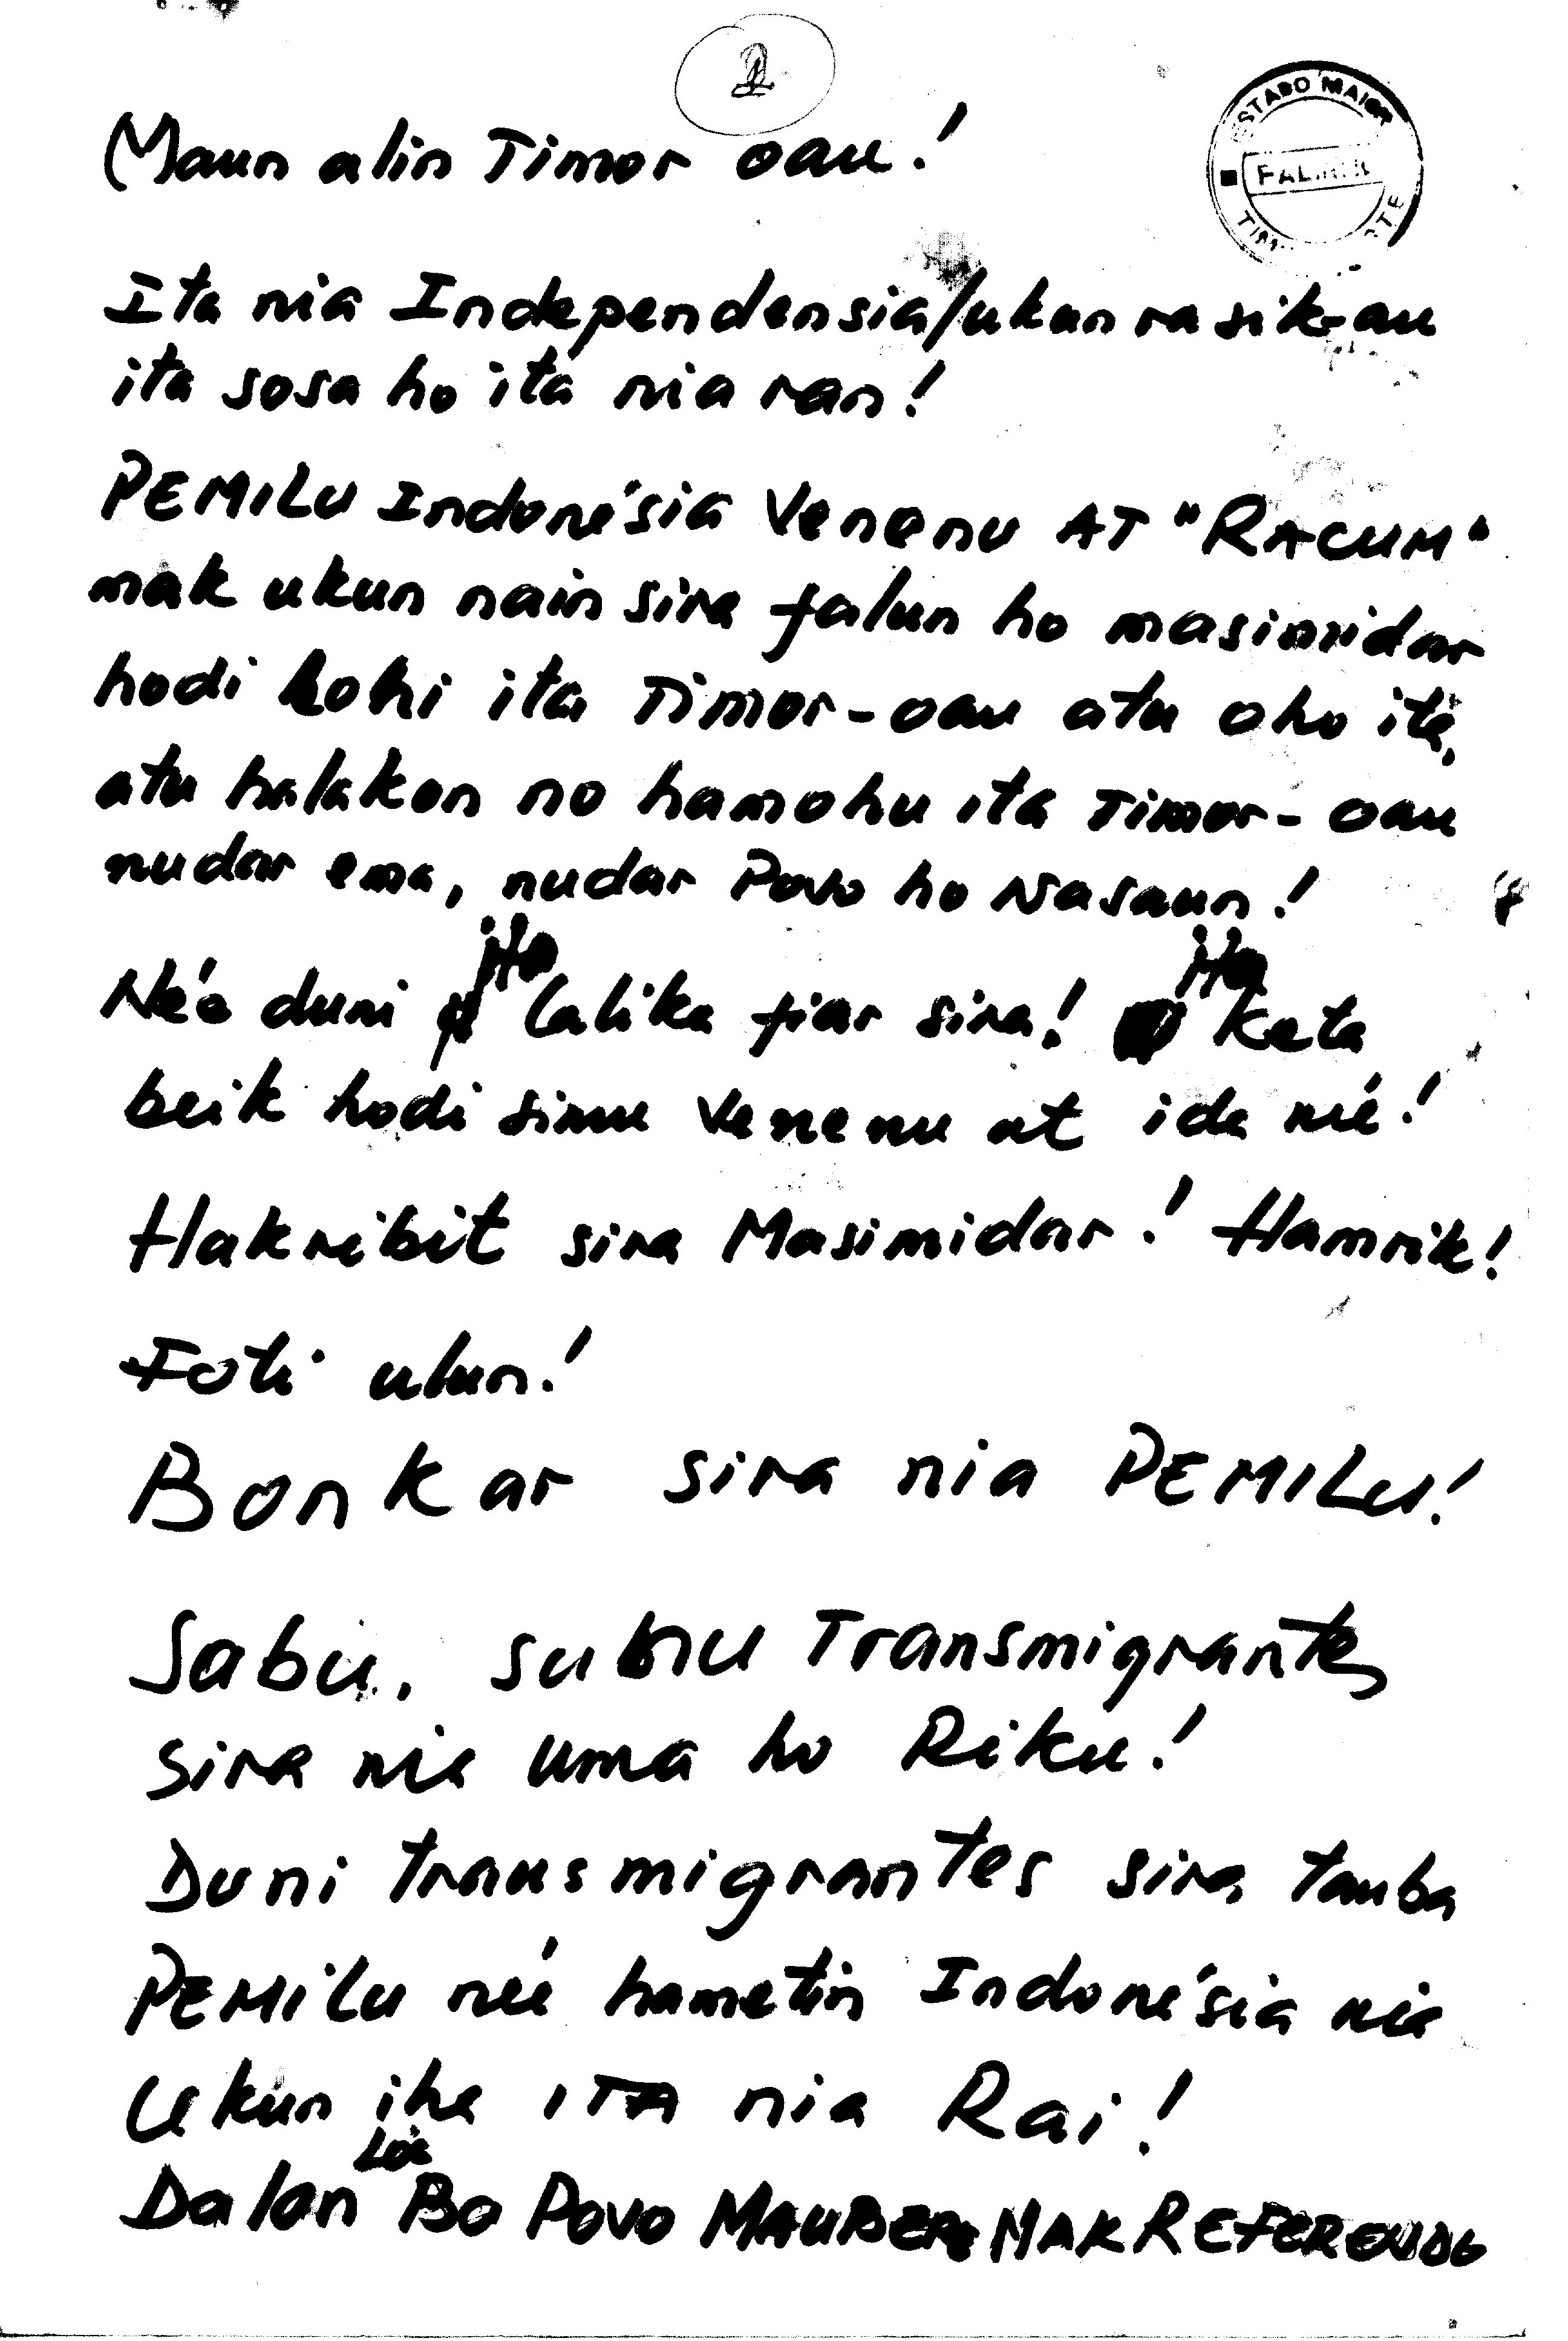 1
ESTADO MAIOR
FALINTIL
Maun alin Timor oan!
Ita nia Independensia/ukun rasik-an
ita sosa ho ita nia ran!
PEMILU Indonésia Venenu AT "RACUM"
mak ukun nain sira falun ho masimidar
hodi hohi ita Timor-oan atu oho ita,
atu halakon no hamohu ita Timor-oan
nudar ema, nudar Povo ho Nasaun!
Né'e duni ita lalika fiar sira! Ita keta
beik hodi simu Venenu at ida né!
Hakribit sira Masimidar! Hamrik!
Foti ulun!
Bonkar sira nia PEMILU!
Sabu, sunu Transmigrantes
sira nia uma ho Riku!
Duni transmigrantes sira, tanba
PEMILU né'e hametin Indonésia nia
Ukun iha ITA nia Rai!
Dalan Lós Ba Povo MAUBERE MAK REFERENDO